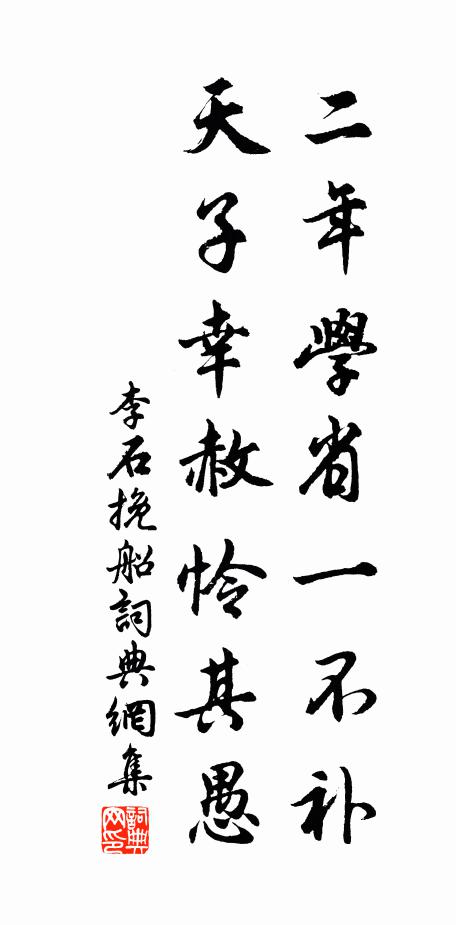 二年學省一不补
天子幸赦怜其愚
李石挽船詞典網集
詞典网印